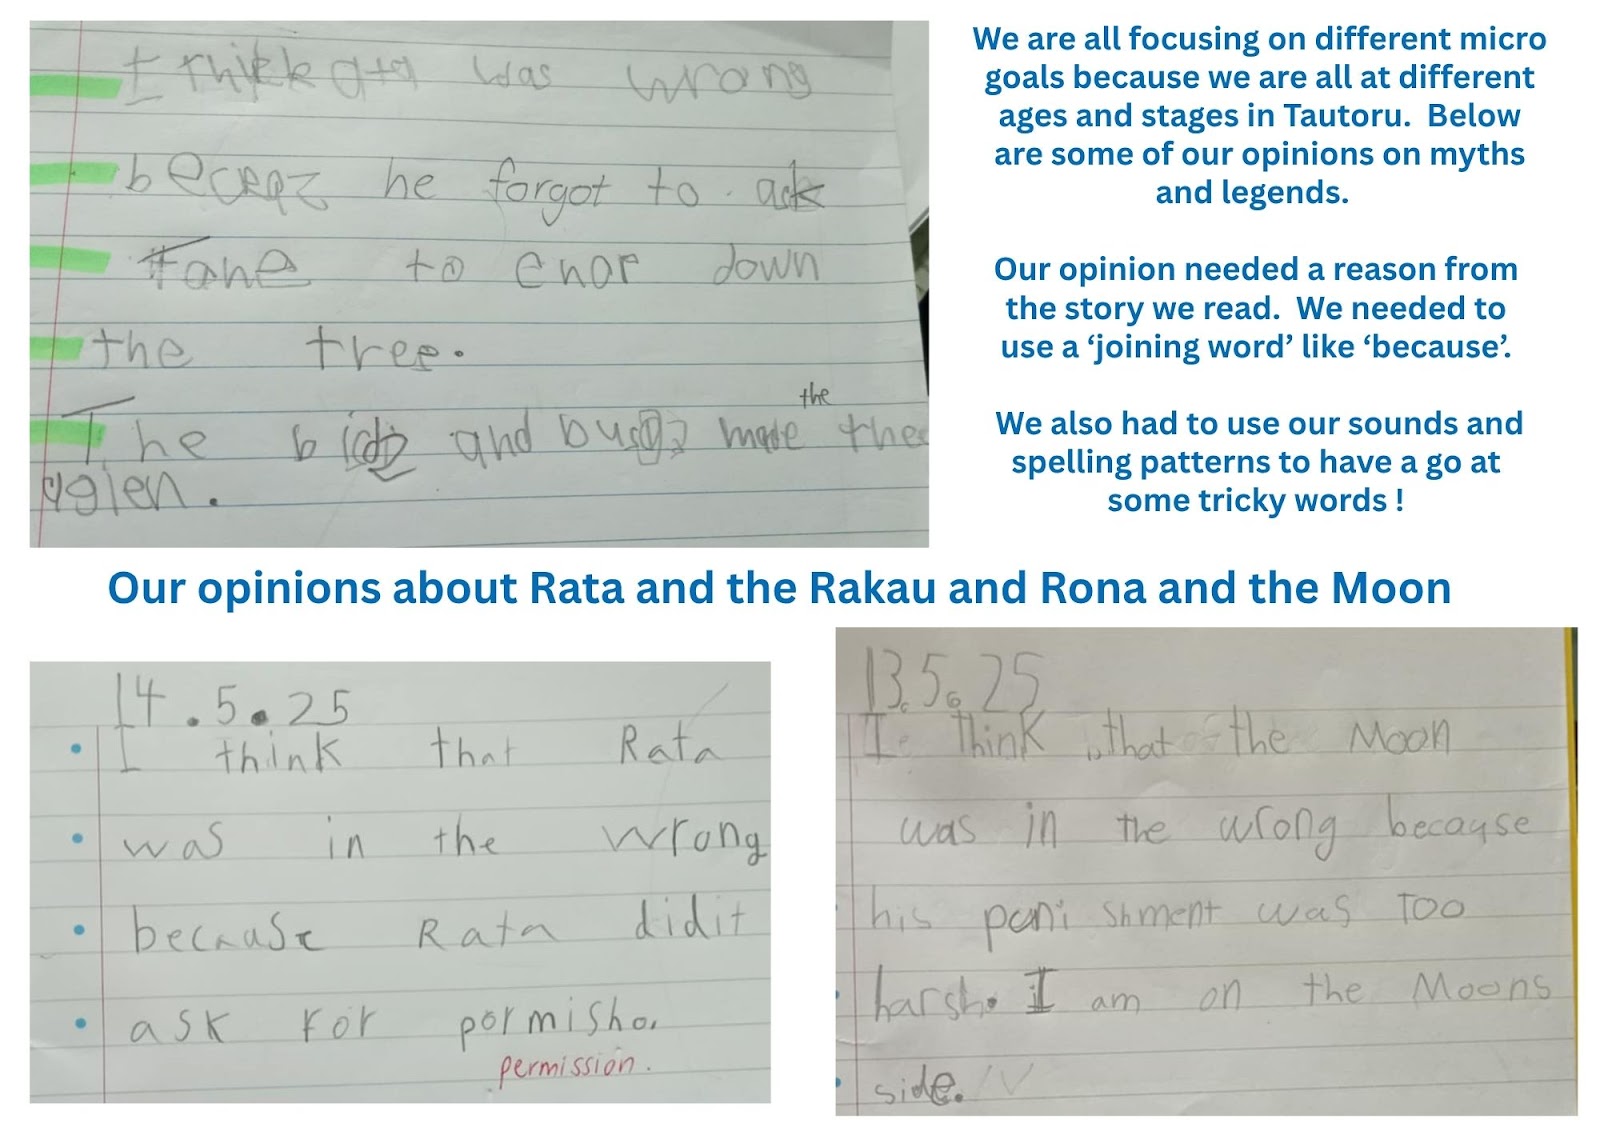 I think rata was wrong
becaqz he forgot to ask
Tane to enor down
the tree.
the
The bids and busgz made the
again.
We are all focusing on different micro
goals because we are all at different
ages and stages in Tautoru. Below
are some of our opinions on myths
and legends.
Our opinion needed a reason from
the story we read. We needed to
use a ‘joining word’ like ‘because’.
We also had to use our sounds and
spelling patterns to have a go at
some tricky words !
Our opinions about Rata and the Rakau and Rona and the Moon
14.5.25
I think that Rata
was in the wrong
because Rata didit
ask For pormisho.
permission.
13.5.25
I think that the Moon
was in the wrong because
his punishment was Too
harsh. I am on the Moons
side.